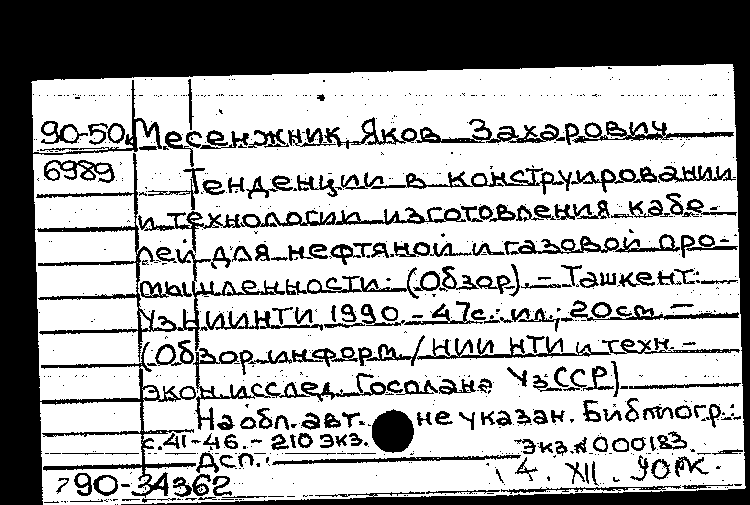 90-50к Месенжник, Яков Захарович
6989 Тенденции в конструировании
и технологии изготовления кабе-
лей для нефтяной и газовой про-
мышленности: (Обзор). - Ташкент:
УзНИИНТИ, 1990. - 47с.: ил.; 20 см. -
(Обзор. информ. / НИИ НТИ и техн.-
экон. исслед. Госплана УзССР)
На обл. авт. не указан. Библиогр.:
с. 41-46. - 210 экз. Экз. № 000183
ДСП.: 4. XII.
90-34362